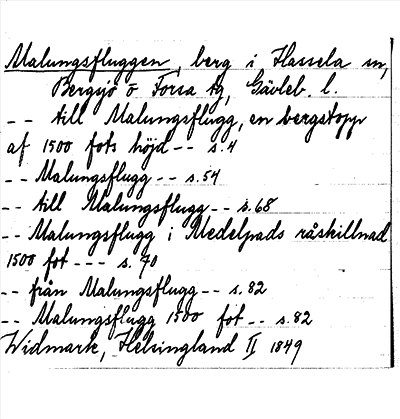 Malungsfluggen, berg i Hassela sn,
Bergsjö o Forsa tg, Gävleb. l.
-- till Malungsflugg, en bergstopp
af 1500 fots höjd -- s.4
-- Malungsflugg -- s.54
-- till Malungsflugg -- s.68
-- Malungsflugg i Medelpads råskillnad
1500 fot --- s. 70
-- från Malungsflugg -- s.82
-- Malungsflugg 1500 fot -- s.82
Widmark, Helsingland II 1849